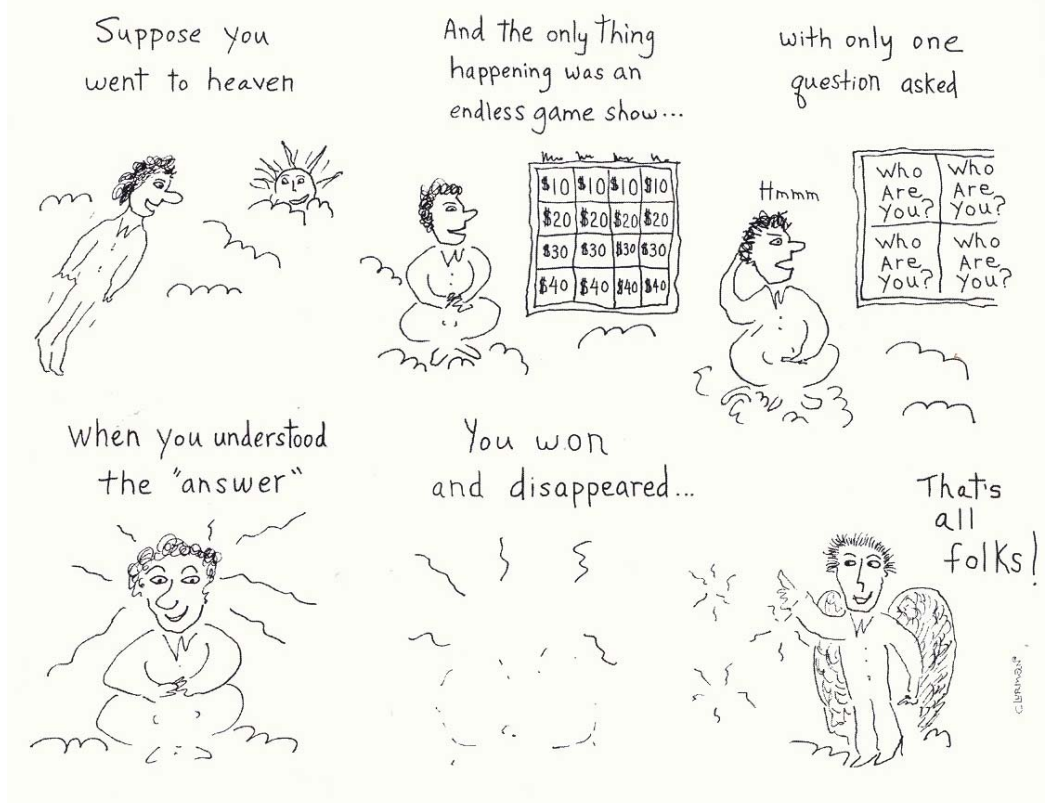 Suppose you
went to heaven
And the only thing
happening was an
endless game show...
$10 $10 $10 $10
$20 $20 $20 $20
$30 $30 $30 $30
$40 $40 $40 $40
with only one
question asked
Hmmm
Who Who
Are Are
You? You?
Who Who
Are Are
You? You?
When you understood
the "answer"
You won
and disappeared...
That's
all
folks!